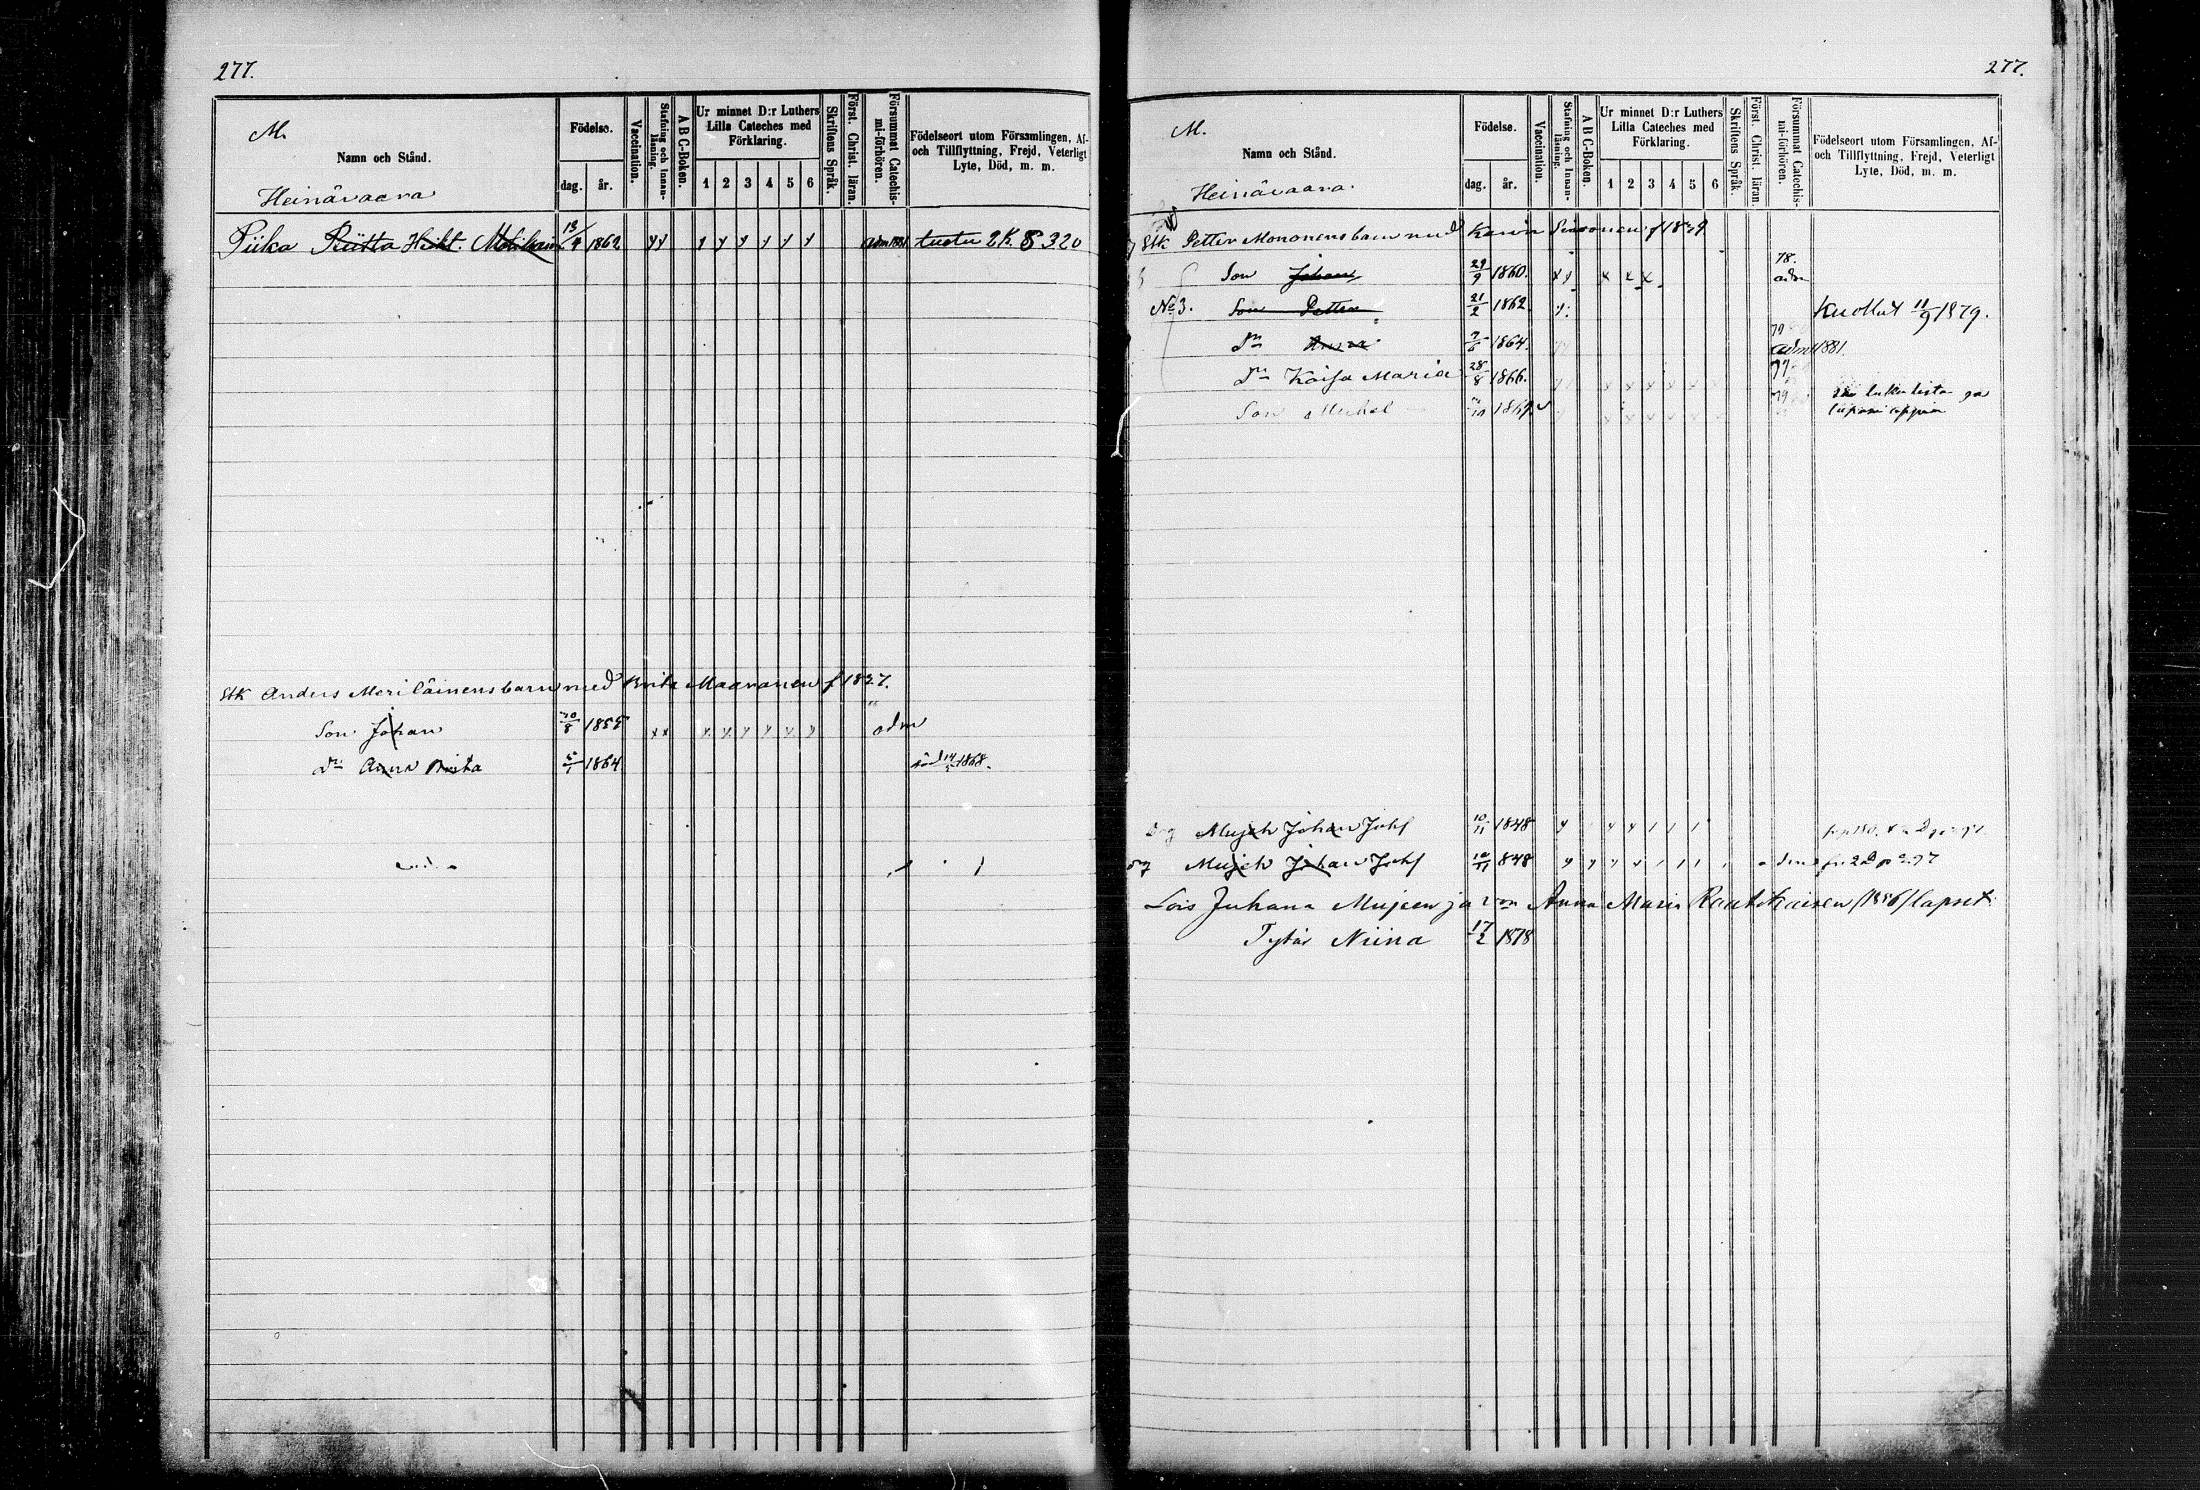 277.
M.
Namn och Stånd.
Heinävaara
Födelse.
dag. år.
Vaccination.
Stafning och Innan-läsning.
A B C-Boken.
Ur minnet D:r Luthers
Lilla Cateches med
Förklaring.
1 2 3 4 5 6
Skriftens Språk.
Först. Christ. läran.
Försummat Catechis-mi-förhören.
Födelseort utom Församlingen, Af-
och Tillflyttning, Frejd, Veterligt
Lyte, Död, m. m.
Piika Riitta Heikt. 13/4 1862 adm 1881 2 K. S 320
Anders Meriläinens barn med Brita Maaranen f 1827.
Son Johan 1855 adm
Dr Anna Brita 1864 död 1868.
277.
M.
Namn och Stånd.
Heinävaara.
Födelse.
dag. år.
Vaccination.
Stafning och Innan-läsning.
A B C-Boken.
Ur minnet D:r Luthers
Lilla Cateches med
Förklaring.
1 2 3 4 5 6
Skriftens Språk.
Först. Christ. läran.
Försummat Catechis-mi-förhören.
Födelseort utom Församlingen, Af-
och Tillflyttning, Frejd, Veterligt
Lyte, Död, m. m.
Petter Mononens barn med Karin
Son Johan 29/9 1860. 78. adm
No 3. Son Petter 21/2 1862 Kuollut 11/9 1879.
Dr Anna 7/6 1864. 79 adm 1881.
Dr Kaisa Maria 28/8 1866. 79
Son Mickel 79
Johan Johf 10/11 1848
Johan Johf 10/11 848
Lois Juhana Mujeen ja Anna Maria Raatikaisen lapset.
Tytär Niina 17/2 1878